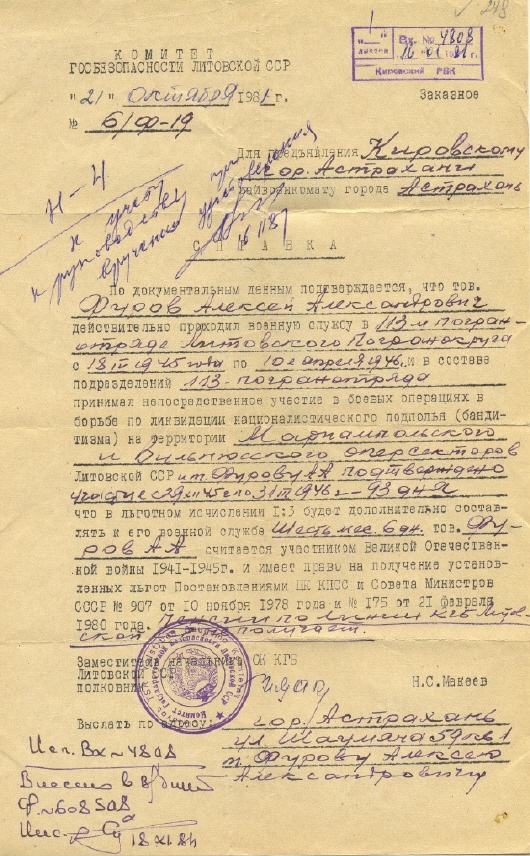 248
"1"
листов
Вх. № 4808
16 01
Кировский РВК
КОМИТЕТ
ГОСБЕЗОПАСНОСТИ ЛИТОВСКОЙ ССР
"21" октября 1981 г.
Заказное
№ 6/Ф-19
Для предъявления Кировскому
гор. Астрахани
райвоенкомату города Астрахань
Н-4
к учету
к руководству при
вручении удостоверения
СПРАВКА
По документальным данным подтверждается, что тов.
Фуров Алексей Александрович
действительно проходил военную службу в 113-м погран-
отряде Литовского Погранокруга
с 18 III 1945 года по 10е апреля 1946, и в составе
подразделений 113-погранотряда
принимал непосредственное участие в боевых операциях в
борьбе по ликвидации националистического подполья (банди-
тизма) на территории Мариампольского
и Вильнюсского оперсекторов
Литовской ССР и т. Фурову АА подтверждено
участие с 1945 по 1946 г – 93 дня
что в льготном исчислении 1:3 будет дополнительно состав-
лять к его военной службе Шесть мес. 6 дн. тов. Фу-
ров А А считается участником Великой Отечествен-
ной войны 1941-1945г. и имеет право на получение установ-
ленных льгот Постановлениями ЦК КПСС и Совета Министров
СССР № 907 от 10 ноября 1978 года и № 175 от 21 февраля
1980 года. Пенсии по линии КГБ Литов-
ской не получает.
Заместитель начальника ОК КГБ
Литовской ССР
полковник Н.С.Макеев
Выслать по адресу: гор. Астрахань
ул. Шаумяна 59 кв 1
т. Фурову Алексею
Александровичу
Исп. Вх № 4808
Внесено в
Ф. № 608508
18 XI 81